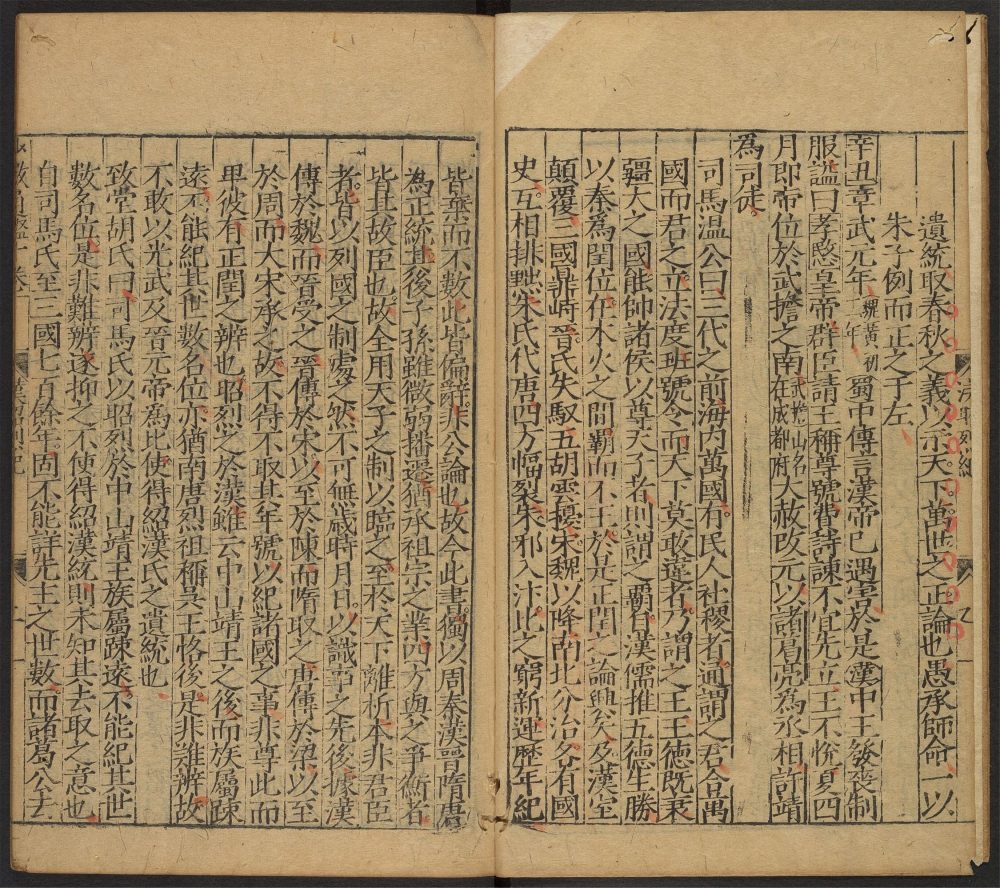 遺統取春秋之義以示天下萬世之正論也愚承師命一以
朱子例而正之于左
辛丑章武元年魏黃初二年蜀中傳言漢帝已遇害於是漢中王發喪制
服謚曰孝愍皇帝群臣請王稱尊號費詩諫不宜先立王不悅夏四
月即帝位於武擔之南武擔山名在成都府大赦改元以諸葛亮為丞相許靖
為司徒
司馬溫公曰三代之前海內萬國有民人社稷者通謂之君合萬
國而君之立法度班號令而天下莫敢違者乃謂之王王德既衰
彊大之國能帥諸侯以尊天子者則謂之霸自漢儒推五德生勝
以秦為閏位在木火之間霸而不王於是正閏之論興矣及漢室
顛覆三國鼎峙晉氏失馭五胡雲擾宋魏以降南北分治各有國
史互相排黜朱氏代唐四方幅裂朱邪入汴比之窮新運歷年紀
皆棄而不數此皆偏辭非公論也故今此書獨以周秦漢晉隋唐
為正統其後子孫雖微弱播遷猶承祖宗之業四方與之爭衡者
皆其故臣也故全用天子之制以臨之至於天下離析本非君臣
者皆以列國之制處之然不可無歲時月日以識事之先後據漢
傳於魏而晉受之晉傳於宋以至於陳而隋取之唐傳於梁以至
於周而大宋承之故不得不取其年號以紀諸國之事非尊此而
卑彼有正閏之辨也昭烈之於漢雖云中山靖王之後而族屬疎
遠不能紀其世數名位亦猶南唐烈祖稱吳王恪後是非難辨故
不敢以光武及晉元帝為比使得紹漢氏之遺統也
致堂胡氏曰司馬氏以昭烈於中山靖王族屬疎遠不能紀其世
數名位是非難辨遂抑之不使得紹漢統則未知其去取之意也
自司馬氏至三國七百餘年固不能詳先王之世數而諸葛公去